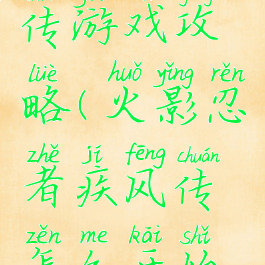 传游戏攻
lüè huǒ yǐng rěn
略(火影忍
zhě jí fēng chuán
者疾风传
zěn me kāi shǐ